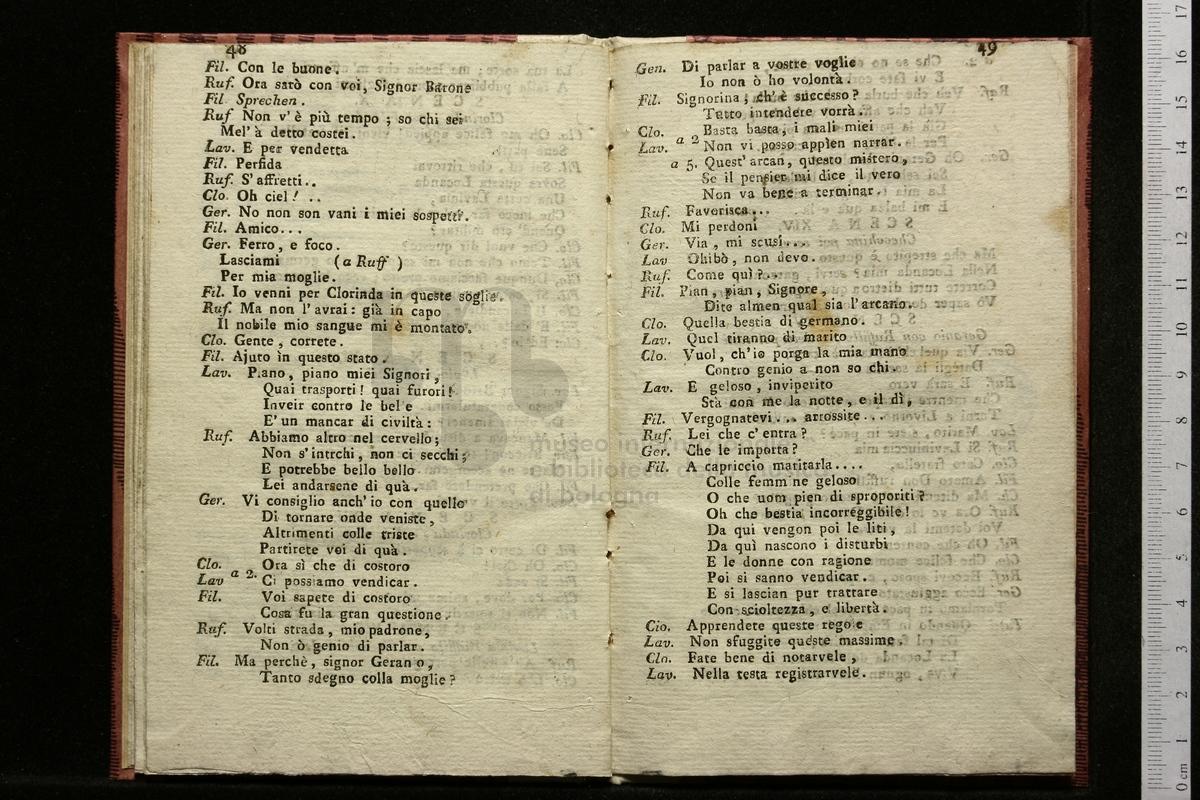 48
Fil. Con le buone.
Ruf. Ora sarò con voi, Signor Barone
Fil Sprechen.
Ruf Non v'è più tempo; so chi sei
Mel' à detto costei.
Lav. E per vendetta
Fil. Perfida
Ruf. S'affretti..
Clo. Oh ciel! ..
Ger. No non son vani i miei sospetti.
Fil. Amico...
Ger. Ferro, e foco.
Lasciami (a Ruff )
Per mia moglie.
Fil. Io venni per Clorinda in queste soglie.
Ruf. Ma non l'avrai: già in capo
Il nobile mio sangue mi è montato.
Clo. Gente, correte.
Fil. Ajuto in questo stato.
Lav. Piano, piano miei Signori,
Quai trasporti! quai furori!
Inveir contro le bel e
E' un mancar di civiltà:
Ruf. Abbiamo altro nel cervello;
Non s'intrchi, non ci secchi;
E potrebbe bello bello
Lei andarsene di quà.
Ger. Vi consiglio anch' io con quello
Di tornare onde veniste,
Altrimenti colle triste
Partirete voi di quà.
Clo. a 2. Ora sì che di costoro
Lav Ci possiamo vendicar.
Fil. Voi sapete di costoro
Cosa fu la gran questione.
Ruf. Volti strada, mio padrone,
Non ò genio di parlar.
Fil. Ma perchè, signor Geran o,
Tanto sdegno colla moglie?
49
Gen. Di parlar a vostre voglie
Io non ò ho volontà.
Fil. Signorina; ch' è successo?
Tutto intendere vorrà.
Clo. a 2 Basta basta; i mali miei
Lav. Non vi posso appien narrar.
a 5. Quest' arcan, questo mistero,
Se il pensier mi dice il vero
Non va bene a terminar.
Ruf. Favorisca...
Clo. Mi perdoni
Ger. Via, mi scusi...
Lav Ohibò, non devo.
Ruf. Come quì?
Fil. Pian, pian, Signore,
Dite almen qual sia l'arcano.
Clo. Quella bestia di germano.
Lav. Quel tiranno di marito
Clo. Vuol, ch'io porga la mia mano
Contro genio a non so chi.
Lav. E geloso, inviperito
Stà con me la notte, e il dì,
Fil. Vergognatevi... arrossite...
Ruf. Lei che c'entra?
Ger. Che le importa?
Fil. A capriccio maritarla....
Colle femm ne geloso
O che uom pien di sproporiti?
Oh che bestia incorreggibile!
Da qui vengon poi le liti,
Da quì nascono i disturbi
E le donne con ragione
Poi si sanno vendicar.
E si lascian pur trattare
Con scioltezza, e libertà.
Cio. Apprendete queste rego e
Lav. Non sfuggite queste massime.
Clo. Fate bene di notarvele,
Lav. Nella testa registrarvele.
museo internazionale
e biblioteca della musica
di bologna
0 cm 1 2 3 4 5 6 7 8 9 10 11 12 13 14 15 16 17